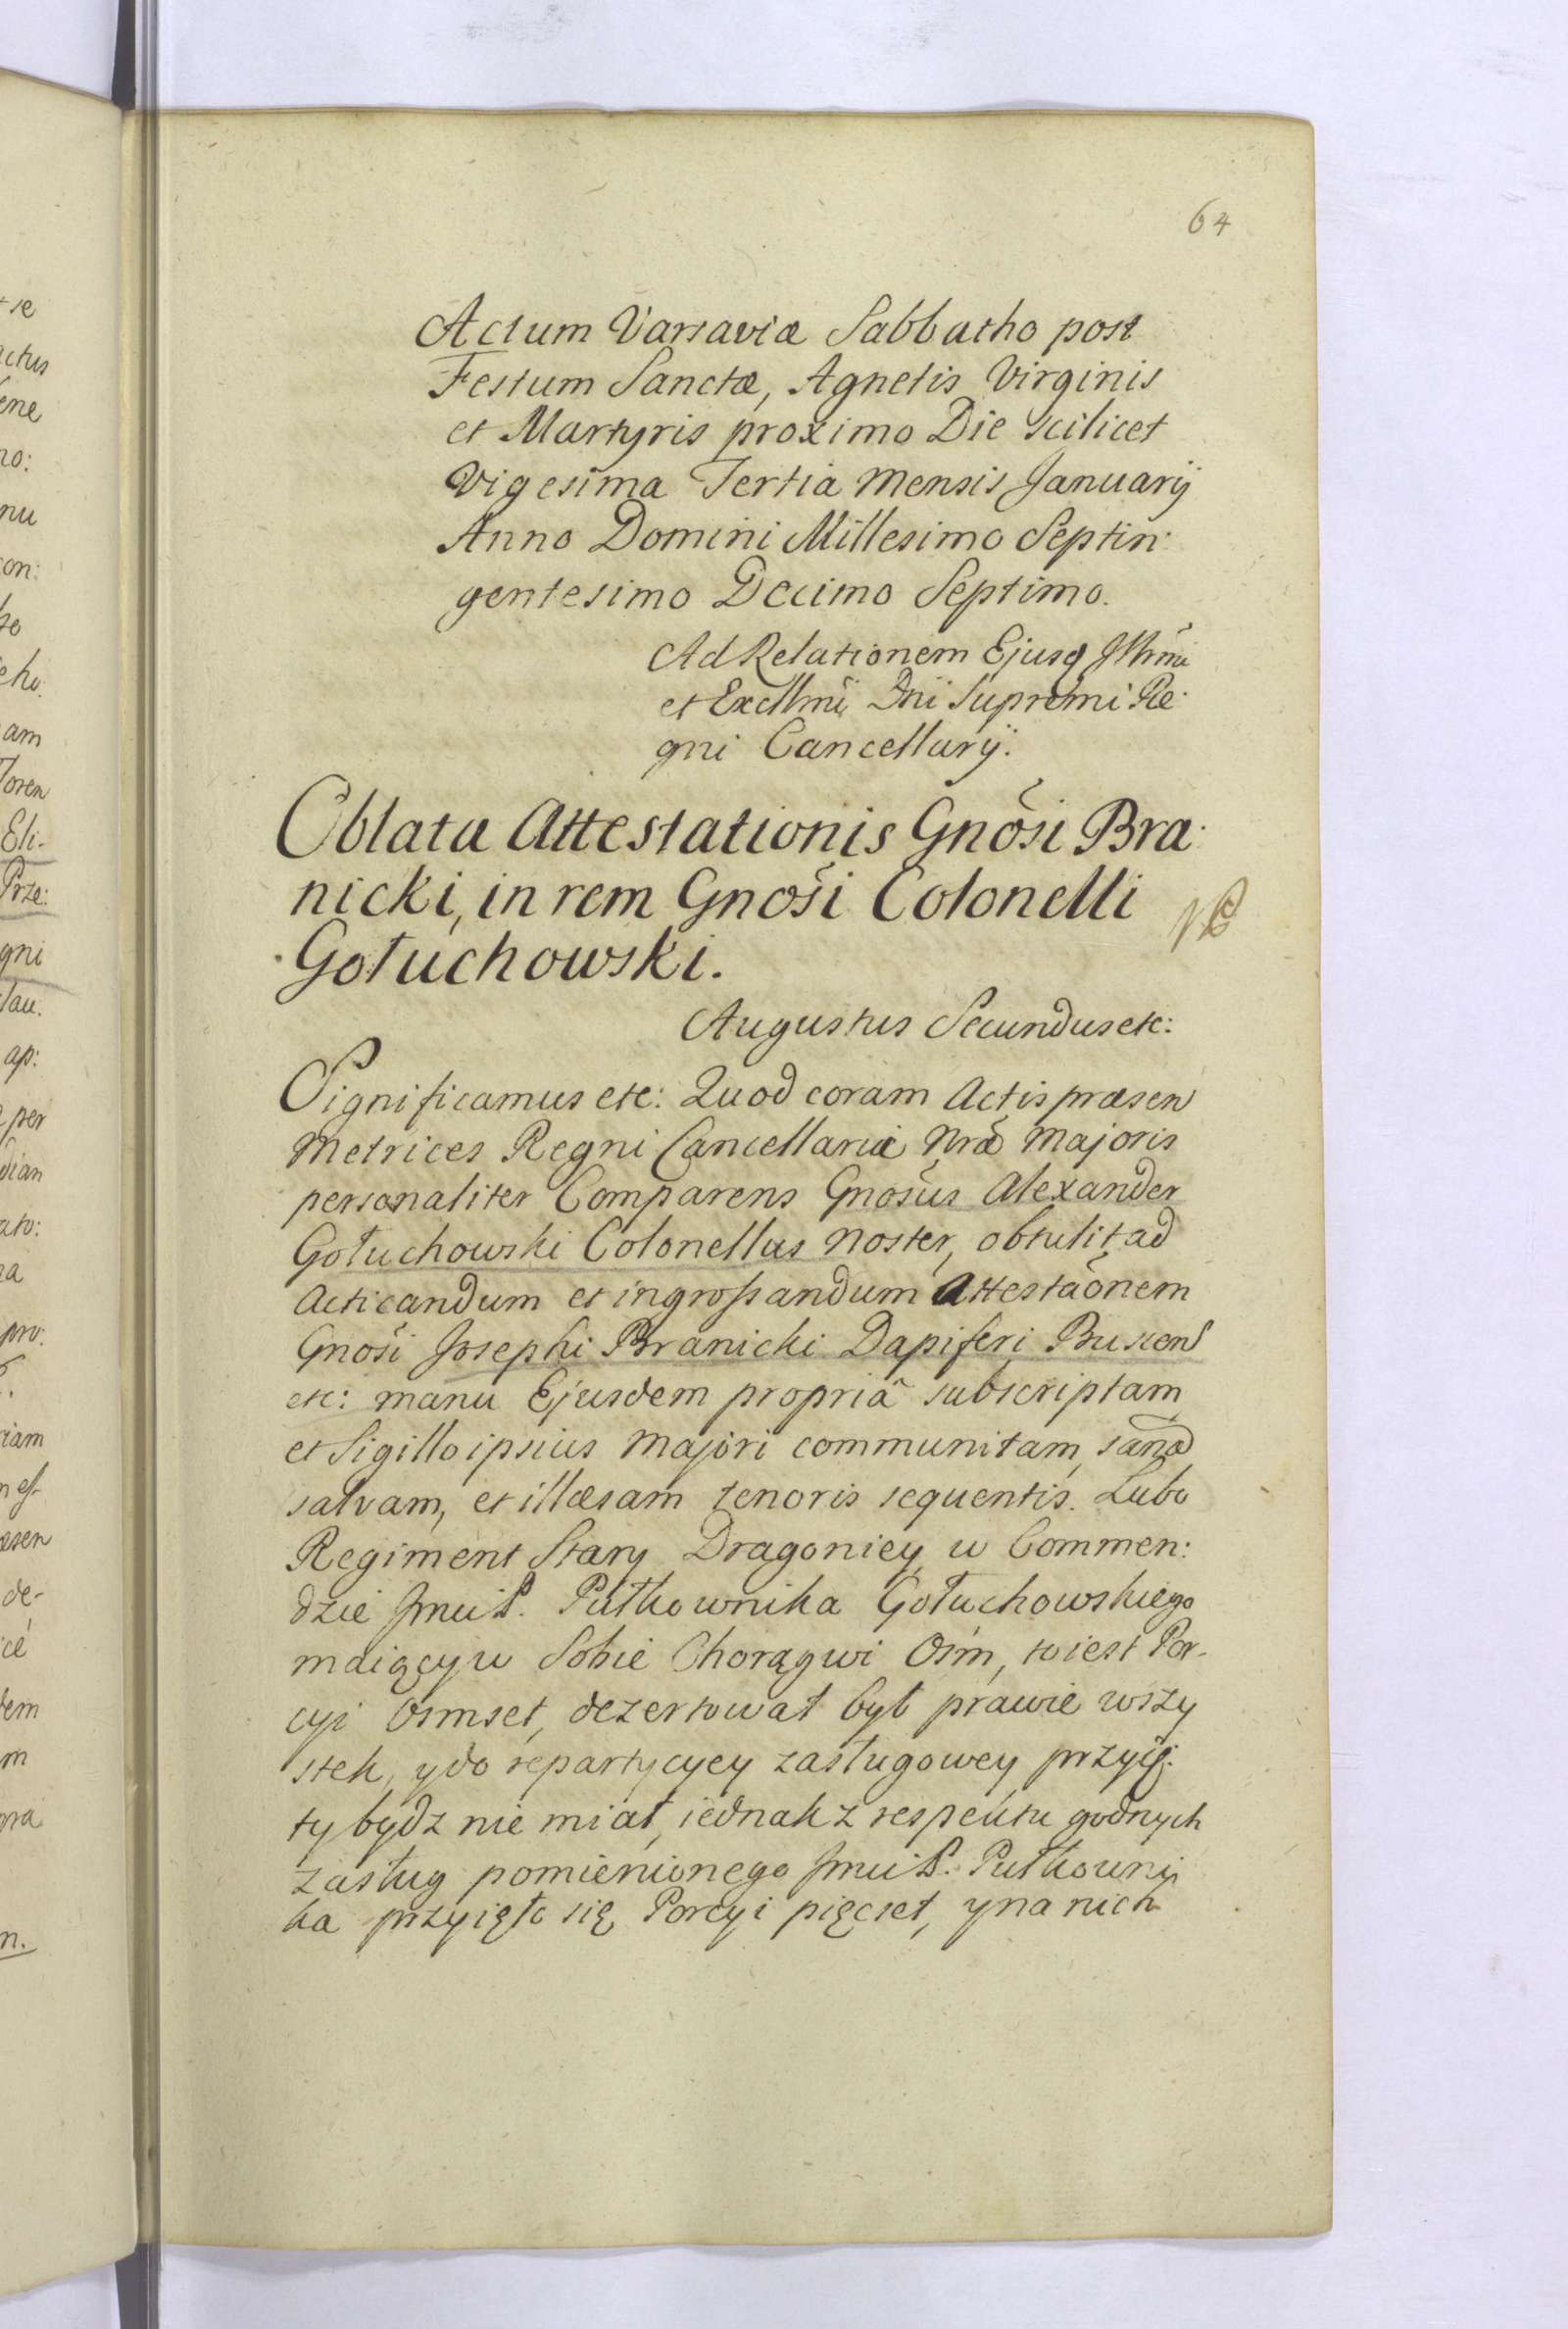 64
Actum Varsaviæ Sabbatho post
Festum Sanctæ, Agnetis Virginis
et Martyris proximo Die scilicet
Vigesima Tertia Mensis Januarij
Anno Domini Millesimo Septin:
gentesimo Decimo Septimo.
Ad Relationem Ejusq Illmi
et Excllmi Dni Supremi Re:
gni Cancellarij.
Oblata Attestationis Gnosi Bra:
nicki, in rem Gnosi Colonelli
Gołuchowski.
Augustus Secundus etc:
Significamus etc: Quod coram Actis præsen
Metrices Regni Cancellariæ Nræ Majoris
personaliter Comparens Gnosus Alexander
Gołuchowski Colonellus Noster, obtulit ad
Acticandum et ingrossandum Attestaõnem
Gnosi Josephi Branicki Dapiferi Buscens
etc: manu Ejusdem propriâ subscriptam
et Sigillo ipsius Majori communitam, sanã
salvam, et illæsam tenoris sequentis. Lubo
Regiment Stary Dragoniey w Commen:
dzie Jmci P. Pułkownika Gołuchowskiego
maiący w Sobie Chorągwi Ośm, to iest Por-
cyi Osmset, dezertował był prawie wszy
stek, y do repartycyey zasługowey przyię:
ty bydz nie miał, iednak z respektu godnych
zasług pomienionego Jmci P. Pułkowni
ka przyięło się Porcyi pięcset, y na nich